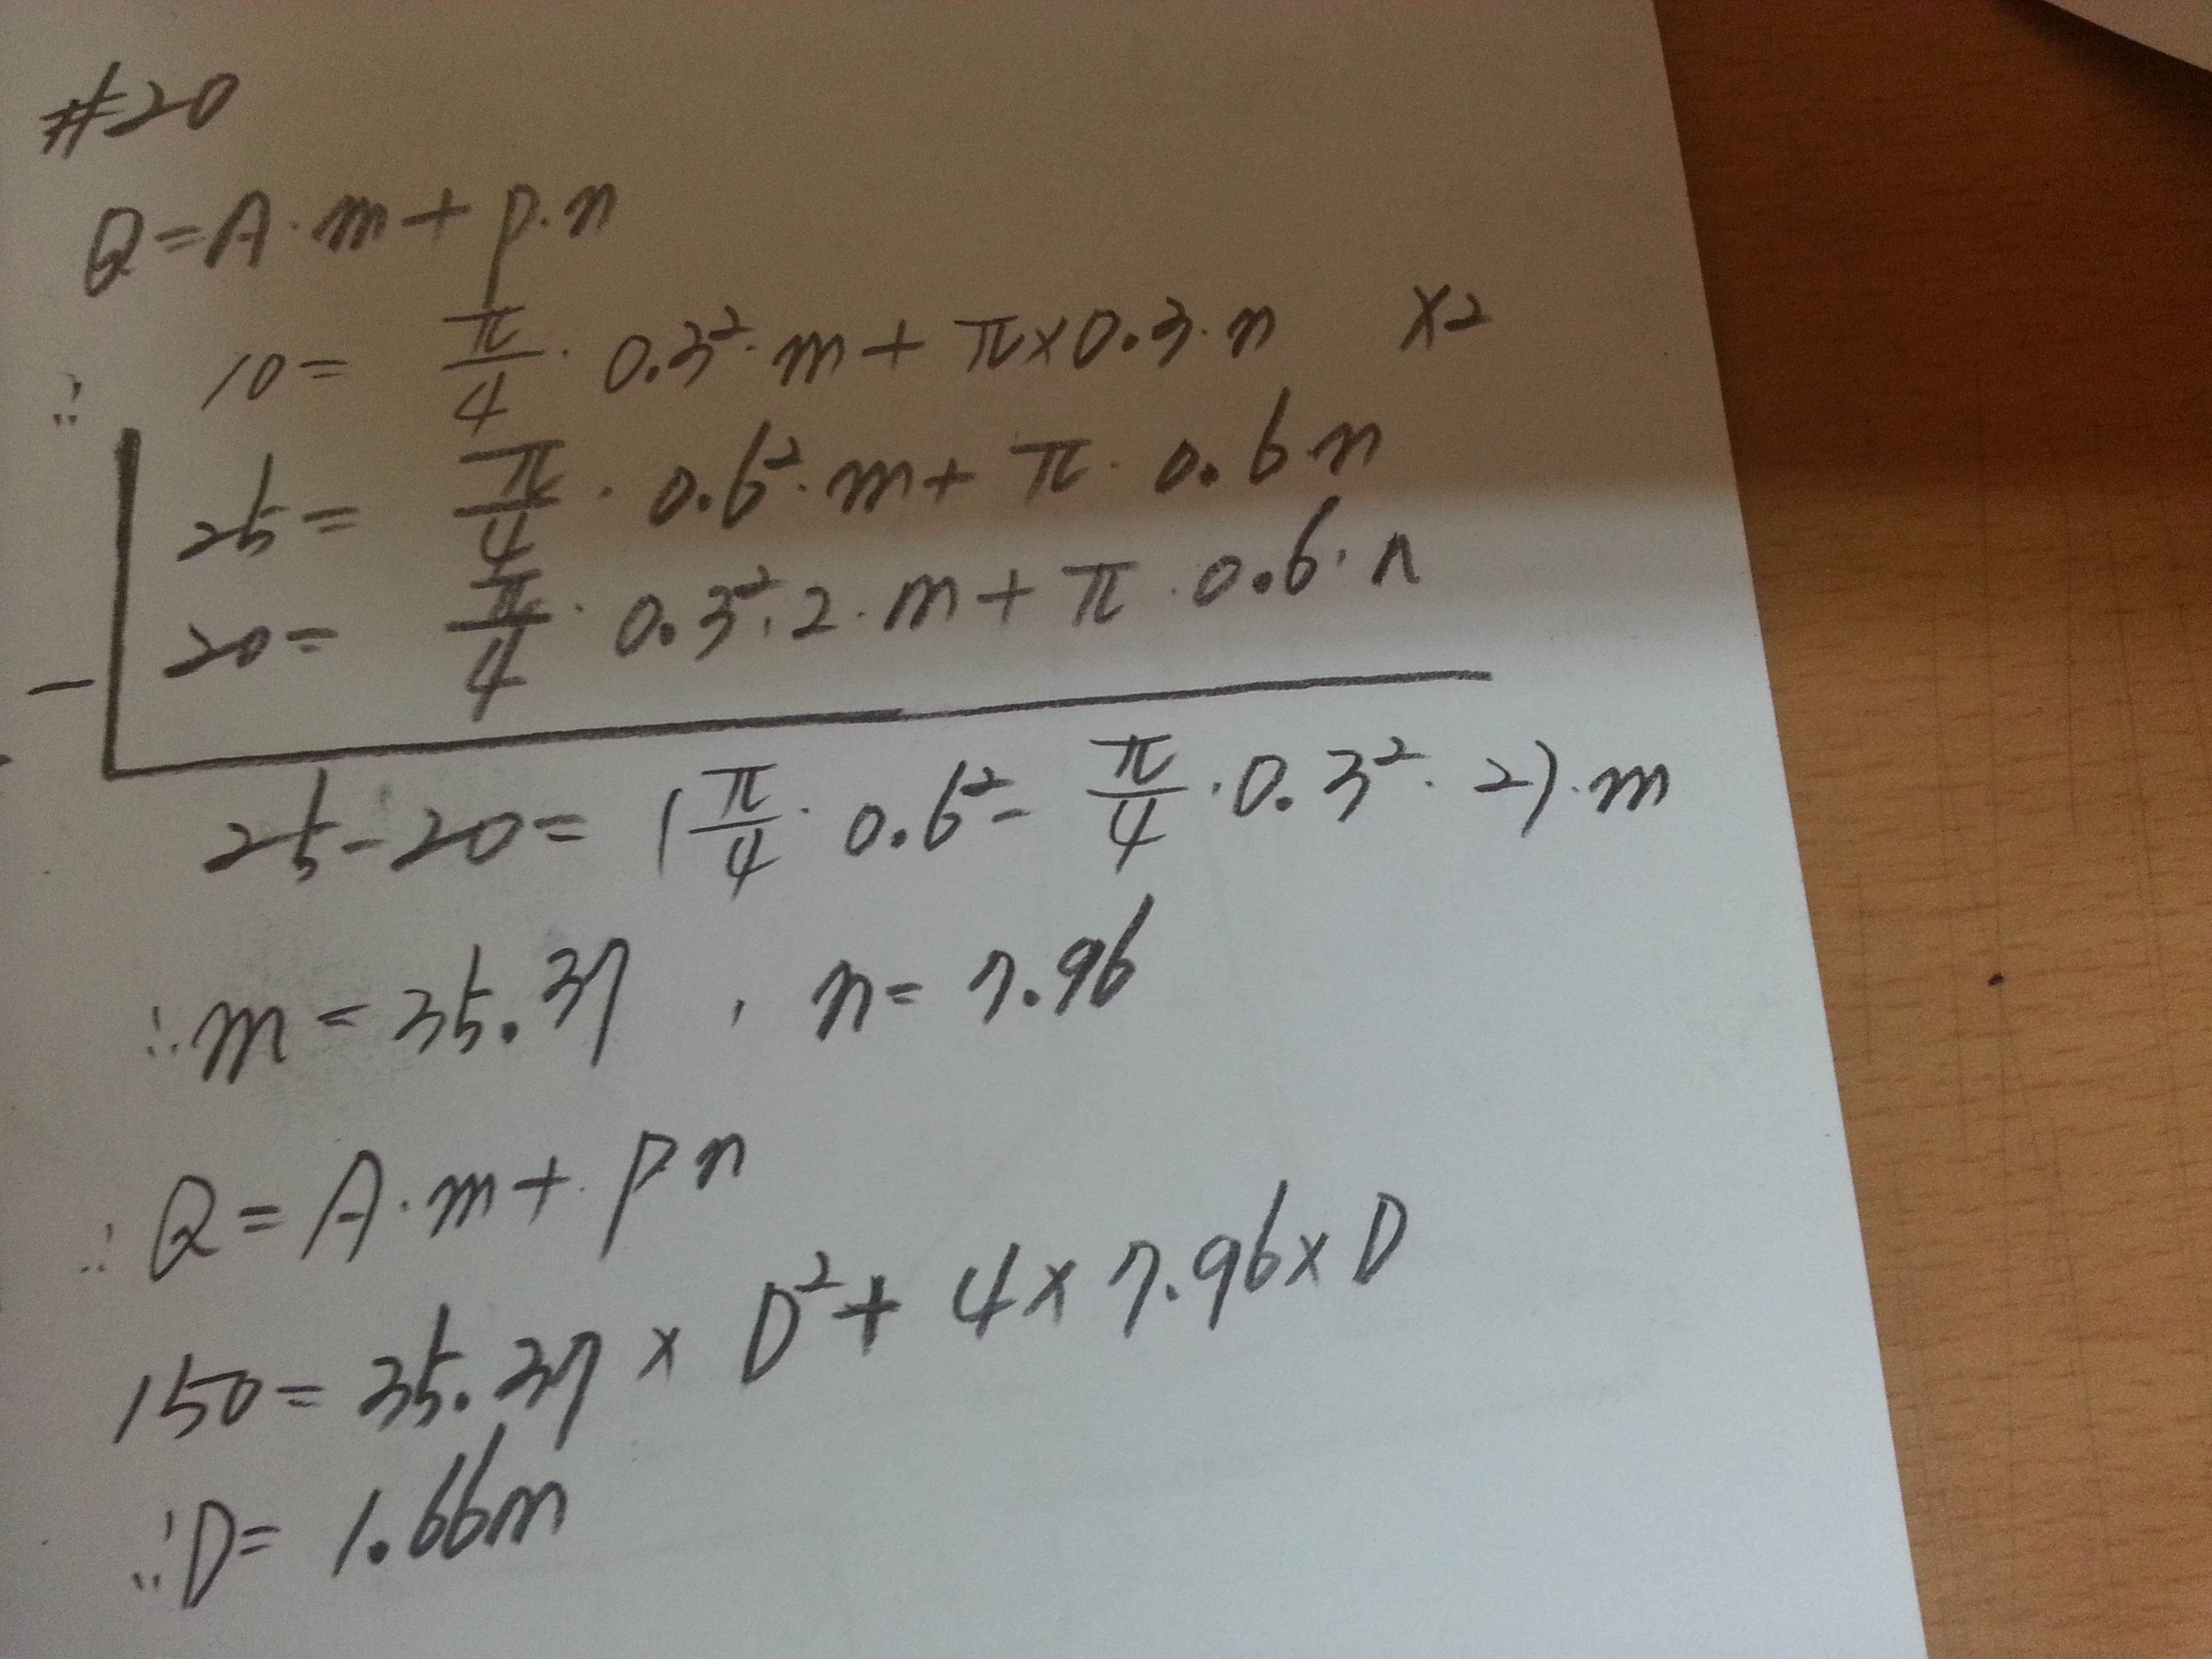 #20
Q=A·m+p·n
∴ 10= π/4 · 0.3²·m+π×0.3·n ×2
25= π/4 · 0.6²·m+π· 0.6·n
- 20= π/4 · 0.3²·2·m+π·0.6·n
25-20= (π/4· 0.6²- π/4·0.3²·2)·m
∴m=35.37 , n=7.96
∴Q=A·m+p·n
150=35.37×D²+4×7.96×D
∴D=1.66m